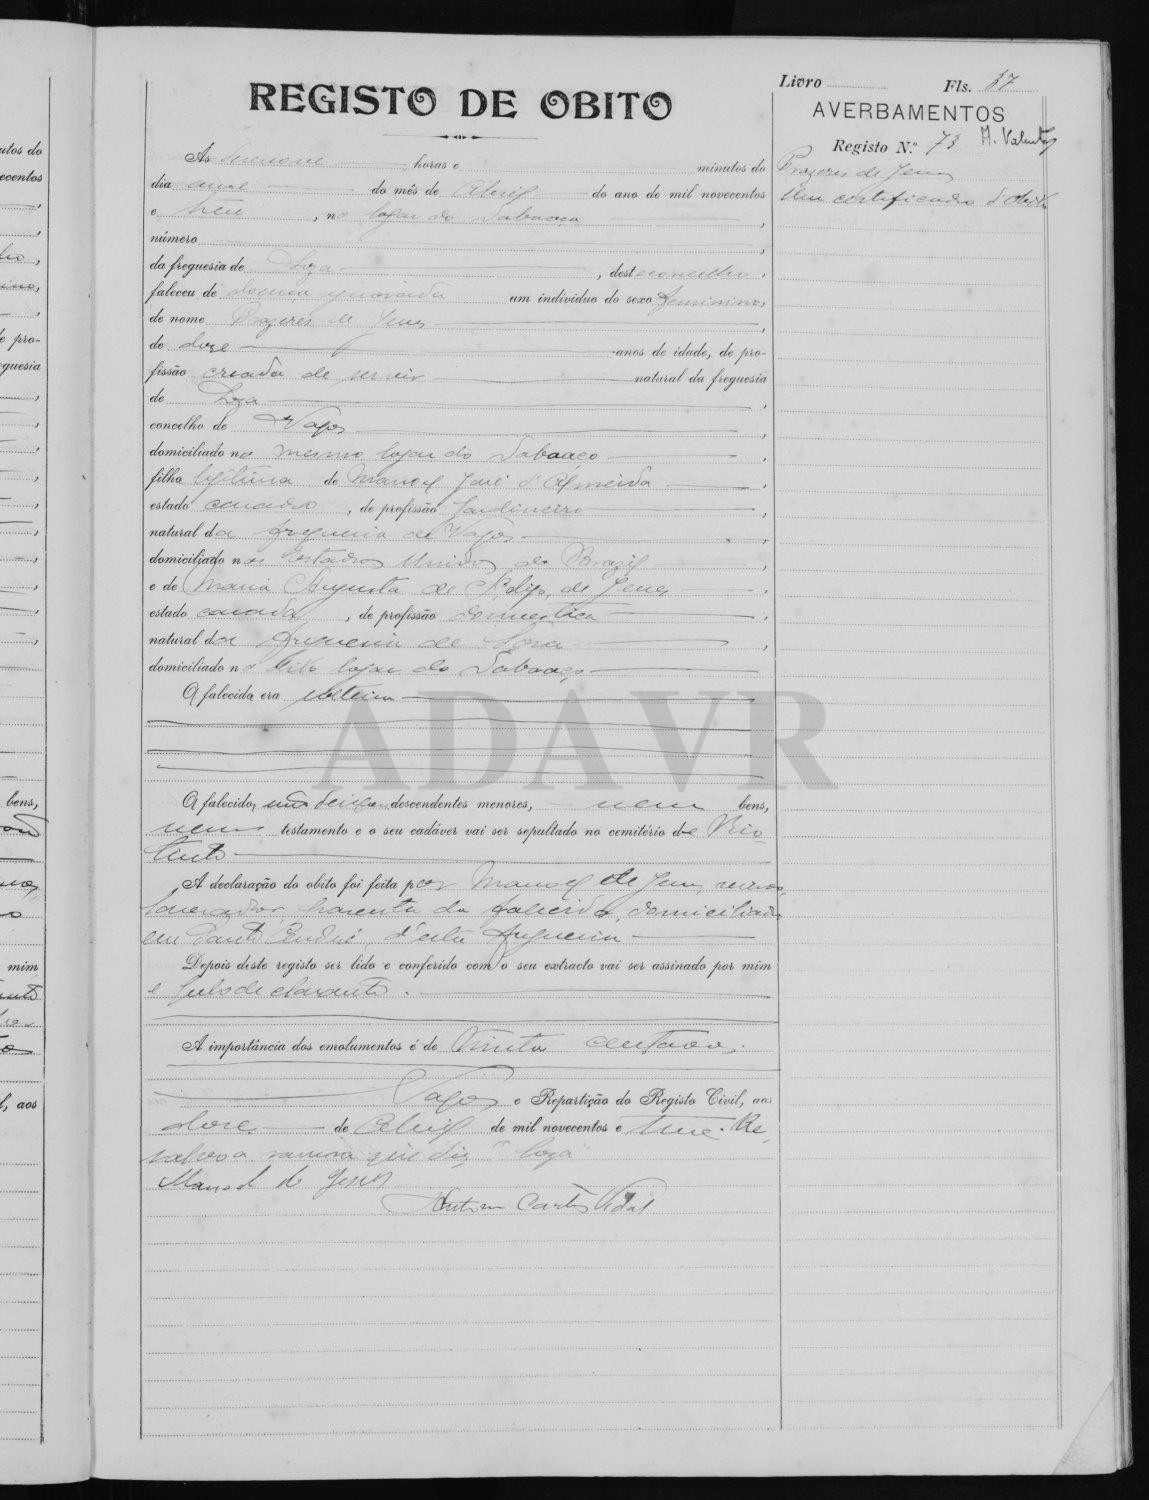 Livro Fls. 37
REGISTO DE OBITO
AVERBAMENTOS
Registo N.º 73
Prazeres de Jesus
um certificado d'obito
Ás horas e minutos do
dia onze do mês de Abril do ano de mil novecentos
e treze, no logar do Sabugo,
número
da freguesia de Soza, deste concelho,
faleceu de doença ignorada um individuo do sexo feminino,
de nome Prazeres de Jesus,
de doze anos de idade, de pro-
fissão creada de servir natural da freguesia
de Soza,
concelho de Vagos,
domiciliado no mesmo logar do,
filha legitima de Manoel José d'Almeida,
estado casado, de profissão Jardineiro,
natural da freguesia de Vagos,
domiciliado nos Estados Unidos do Brazil
e de Maria Augusta de de Jesus,
estado casada, de profissão domestica,
natural da freguesia de Soza,
domiciliado no dito logar do
A falecida era solteira
ADAVR
A falecida não deixou descendentes menores, nem bens,
nem testamento e o seu cadáver vai ser sepultado no cemitério de Rio
Tinto
A declaração do obito foi feita por Manoel de Jesus
lavrador, da falecida, domiciliado
em Santo André, d'esta freguesia
Depois deste registo ser lido e conferido com o seu extracto vai ser assinado por mim
e pelo declarante.
A importância dos emolumentos é de trinta centavos.
Vagos e Repartição do Registo Civil, aos
doze de Abril de mil novecentos e treze. Re,
salvo a rasura que diz "Soza"
Manoel de Jesus
Vidal